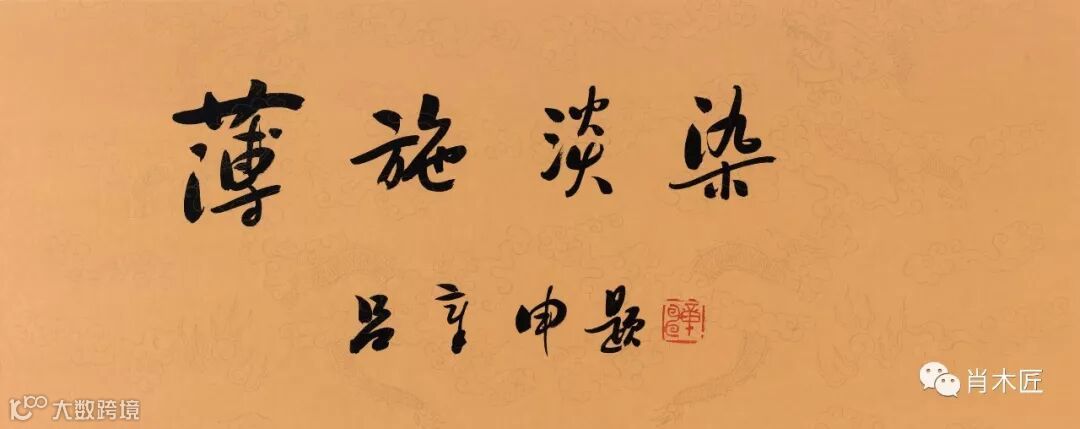 薄施淡染
吕章申题
肖木匠
大数跨境